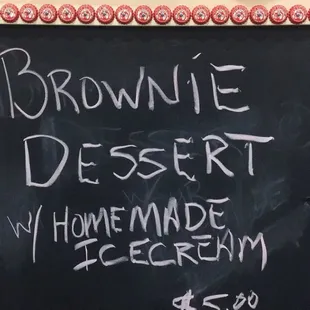 BROWNIE
DESSERT
W/ HOMEMADE
ICECREAM
$5.00